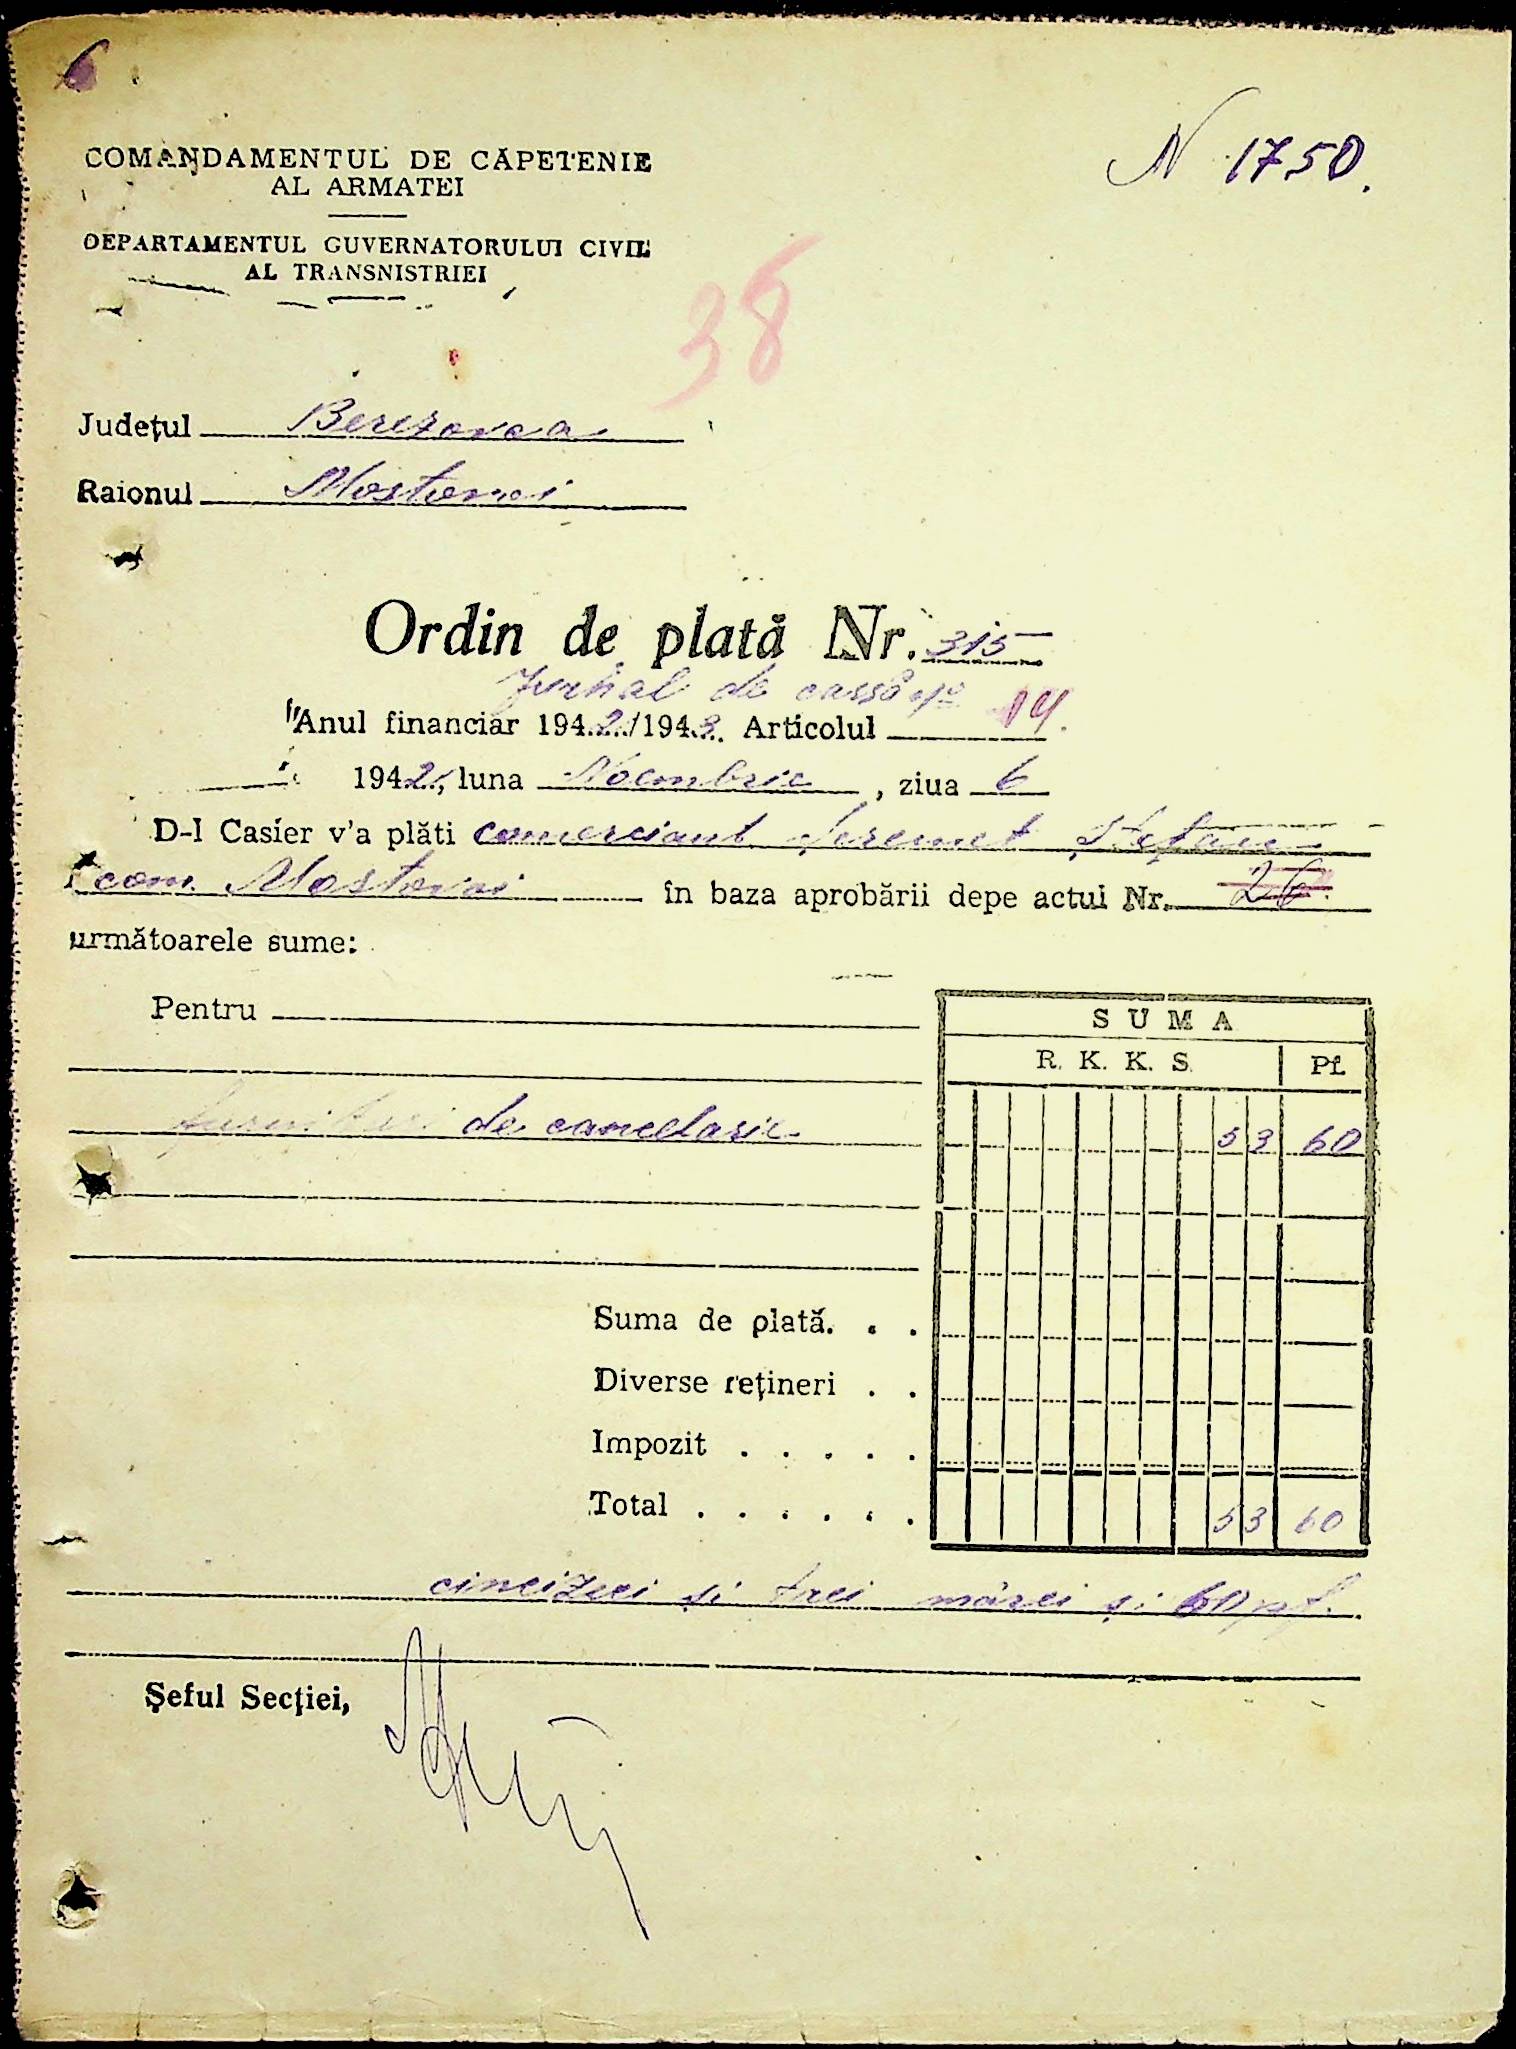 6
N 1750.
COMANDAMENTUL DE CĂPETENIE
AL ARMATEI
DEPARTAMENTUL GUVERNATORULUI CIVIL
AL TRANSNISTRIEI
38
Județul Berezovca
Raionul Mostovoi
Ordin de plată Nr. 315
Jurnal de cassă No 14.
Anul financiar 1942/1943. Articolul
1942, luna Noembrie, ziua 6
D-l Casier v'a plăti comerciant Șeremet Ștefan
com. Mostovoi în baza aprobării depe actul Nr. 26
următoarele sume:
Pentru
SUMA
R. K. K. S. Pf.
furnituri de cancelarie 53 60
Suma de plată. . .
Diverse rețineri . .
Impozit . . . . .
Total . . . . . . 53 60
cincizeci și trei mărci și 60 pf.
Șeful Secției,